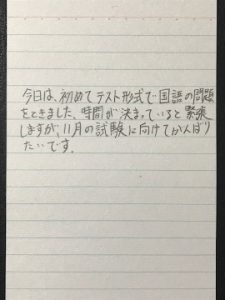 今日は、初めてテスト形式で国語の問題
をときました。時間が決まっていると緊張
しますが、11月の試験に向けてがんばり
たいです。